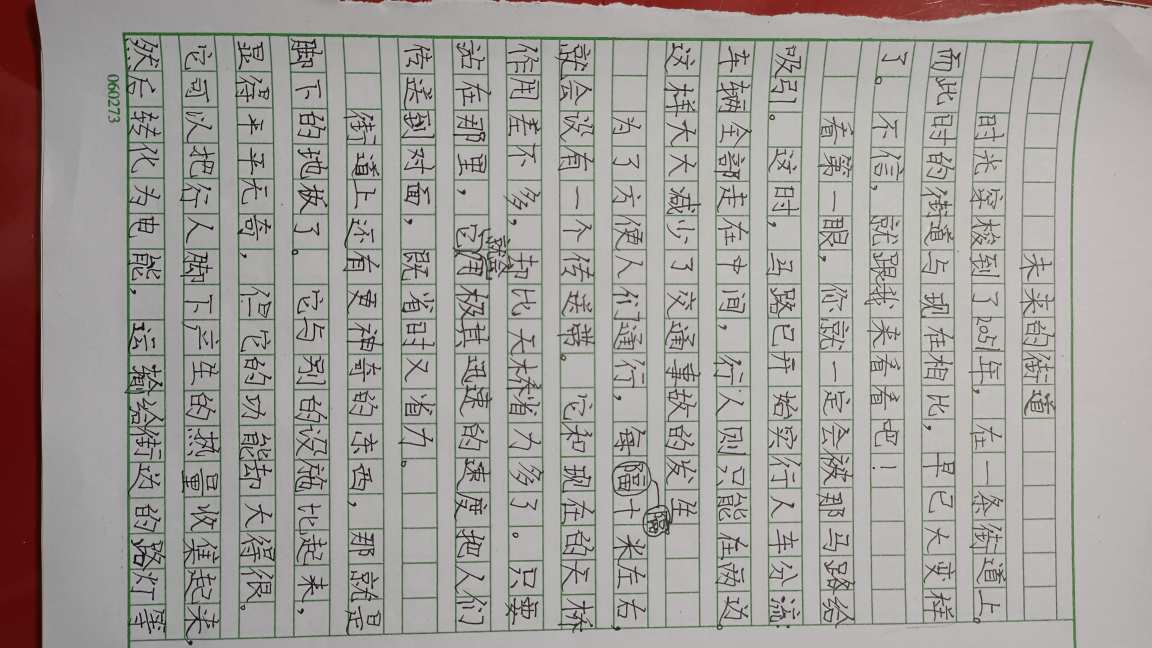 未来的街道
时光穿梭到了2051年，在一条街道上。
而此时的街道与现在相比，早已大变样
了。不信，就跟我来看看吧！
看第一眼，你就一定会被那马路给
吸引。这时，马路已开始实行人车分流：
车辆全部走在中间，行人则只能在两边。
这样大大减少了交通事故的发生
为了方便人们通行，每隔十米左右，
就会设有一个传送带。它和现在的天桥
作用差不多，却比天桥省力多了。只要
站在那里，它就会用极其迅速的速度把人们
传送到对面，既省时又省力。
街道上还有更神奇的东西，那就是
脚下的地板了。它与别的设施比起来，
显得平平无奇，但它的功能却大得很。
它可以把行人脚下产生的热量收集起来，
然后转化为电能，运输给街边的路灯等
060273